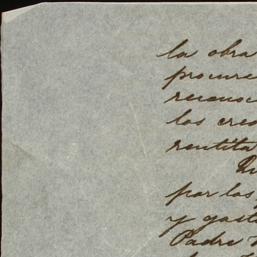 la obra
procure
reconoc
los cre
rentita
por los
y gast
Padre